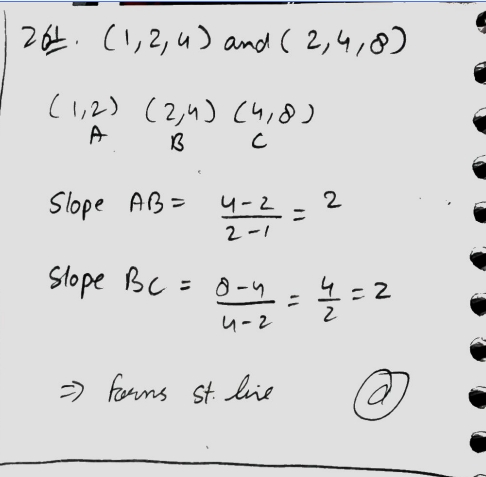 261. (1,2,4) and (2,4,8)
(1,2) (2,4) (4,8)
A B C
Slope AB = 4-2/2-1 = 2
Slope BC = 8-4/4-2 = 4/2 = 2
⇒ forms st. line (d)